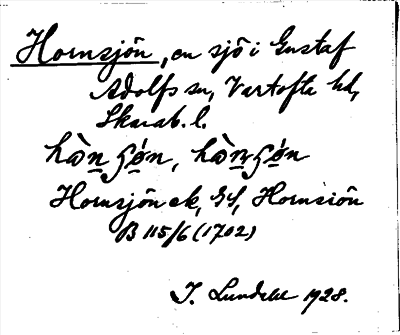 Hornsjön, en sjö i Gustaf
Adolfs sn, Vartofta hd,
Skarab. l.
hὰn ʃø̀n, hὰn ʃø̀n
Hornsjön ek, Gs, Hornsiön
B 115/6 (1702)
I. Lundahl 1928.